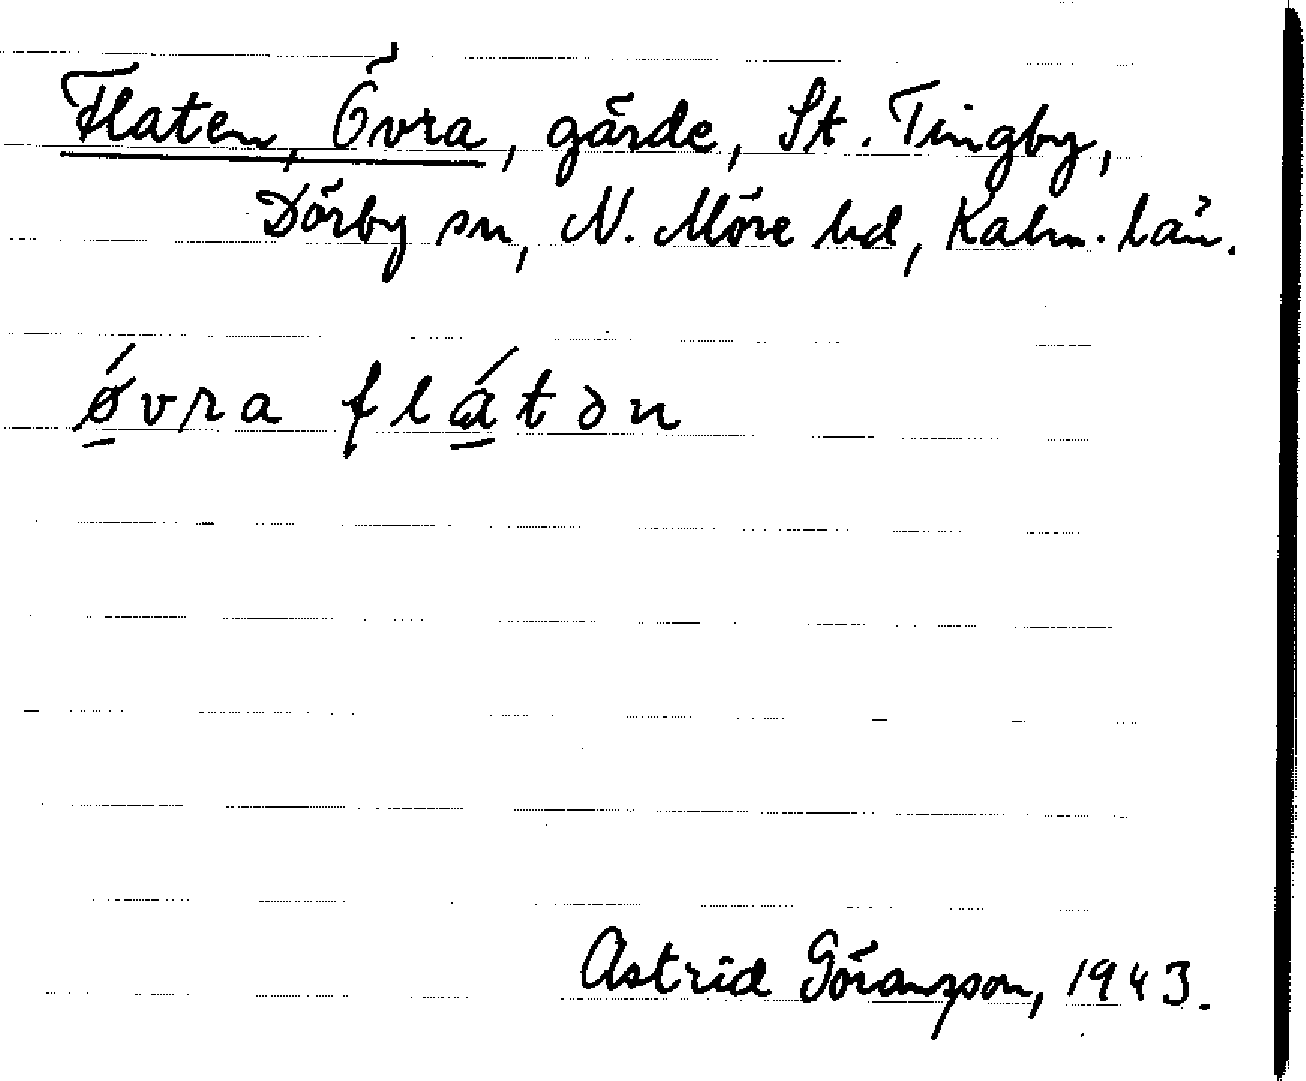 Flaten, Övra, gärde, St. Tingby,
Dörby sn, N. Möre hd, Kalm. län.
ǿvra flátən
Astrid Göranzson, 1943.